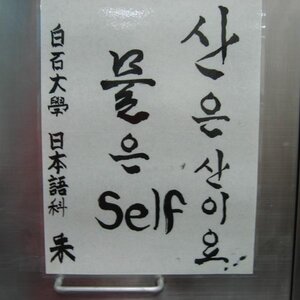 산은 산이요...
물은 Self
白石大學 日本語科